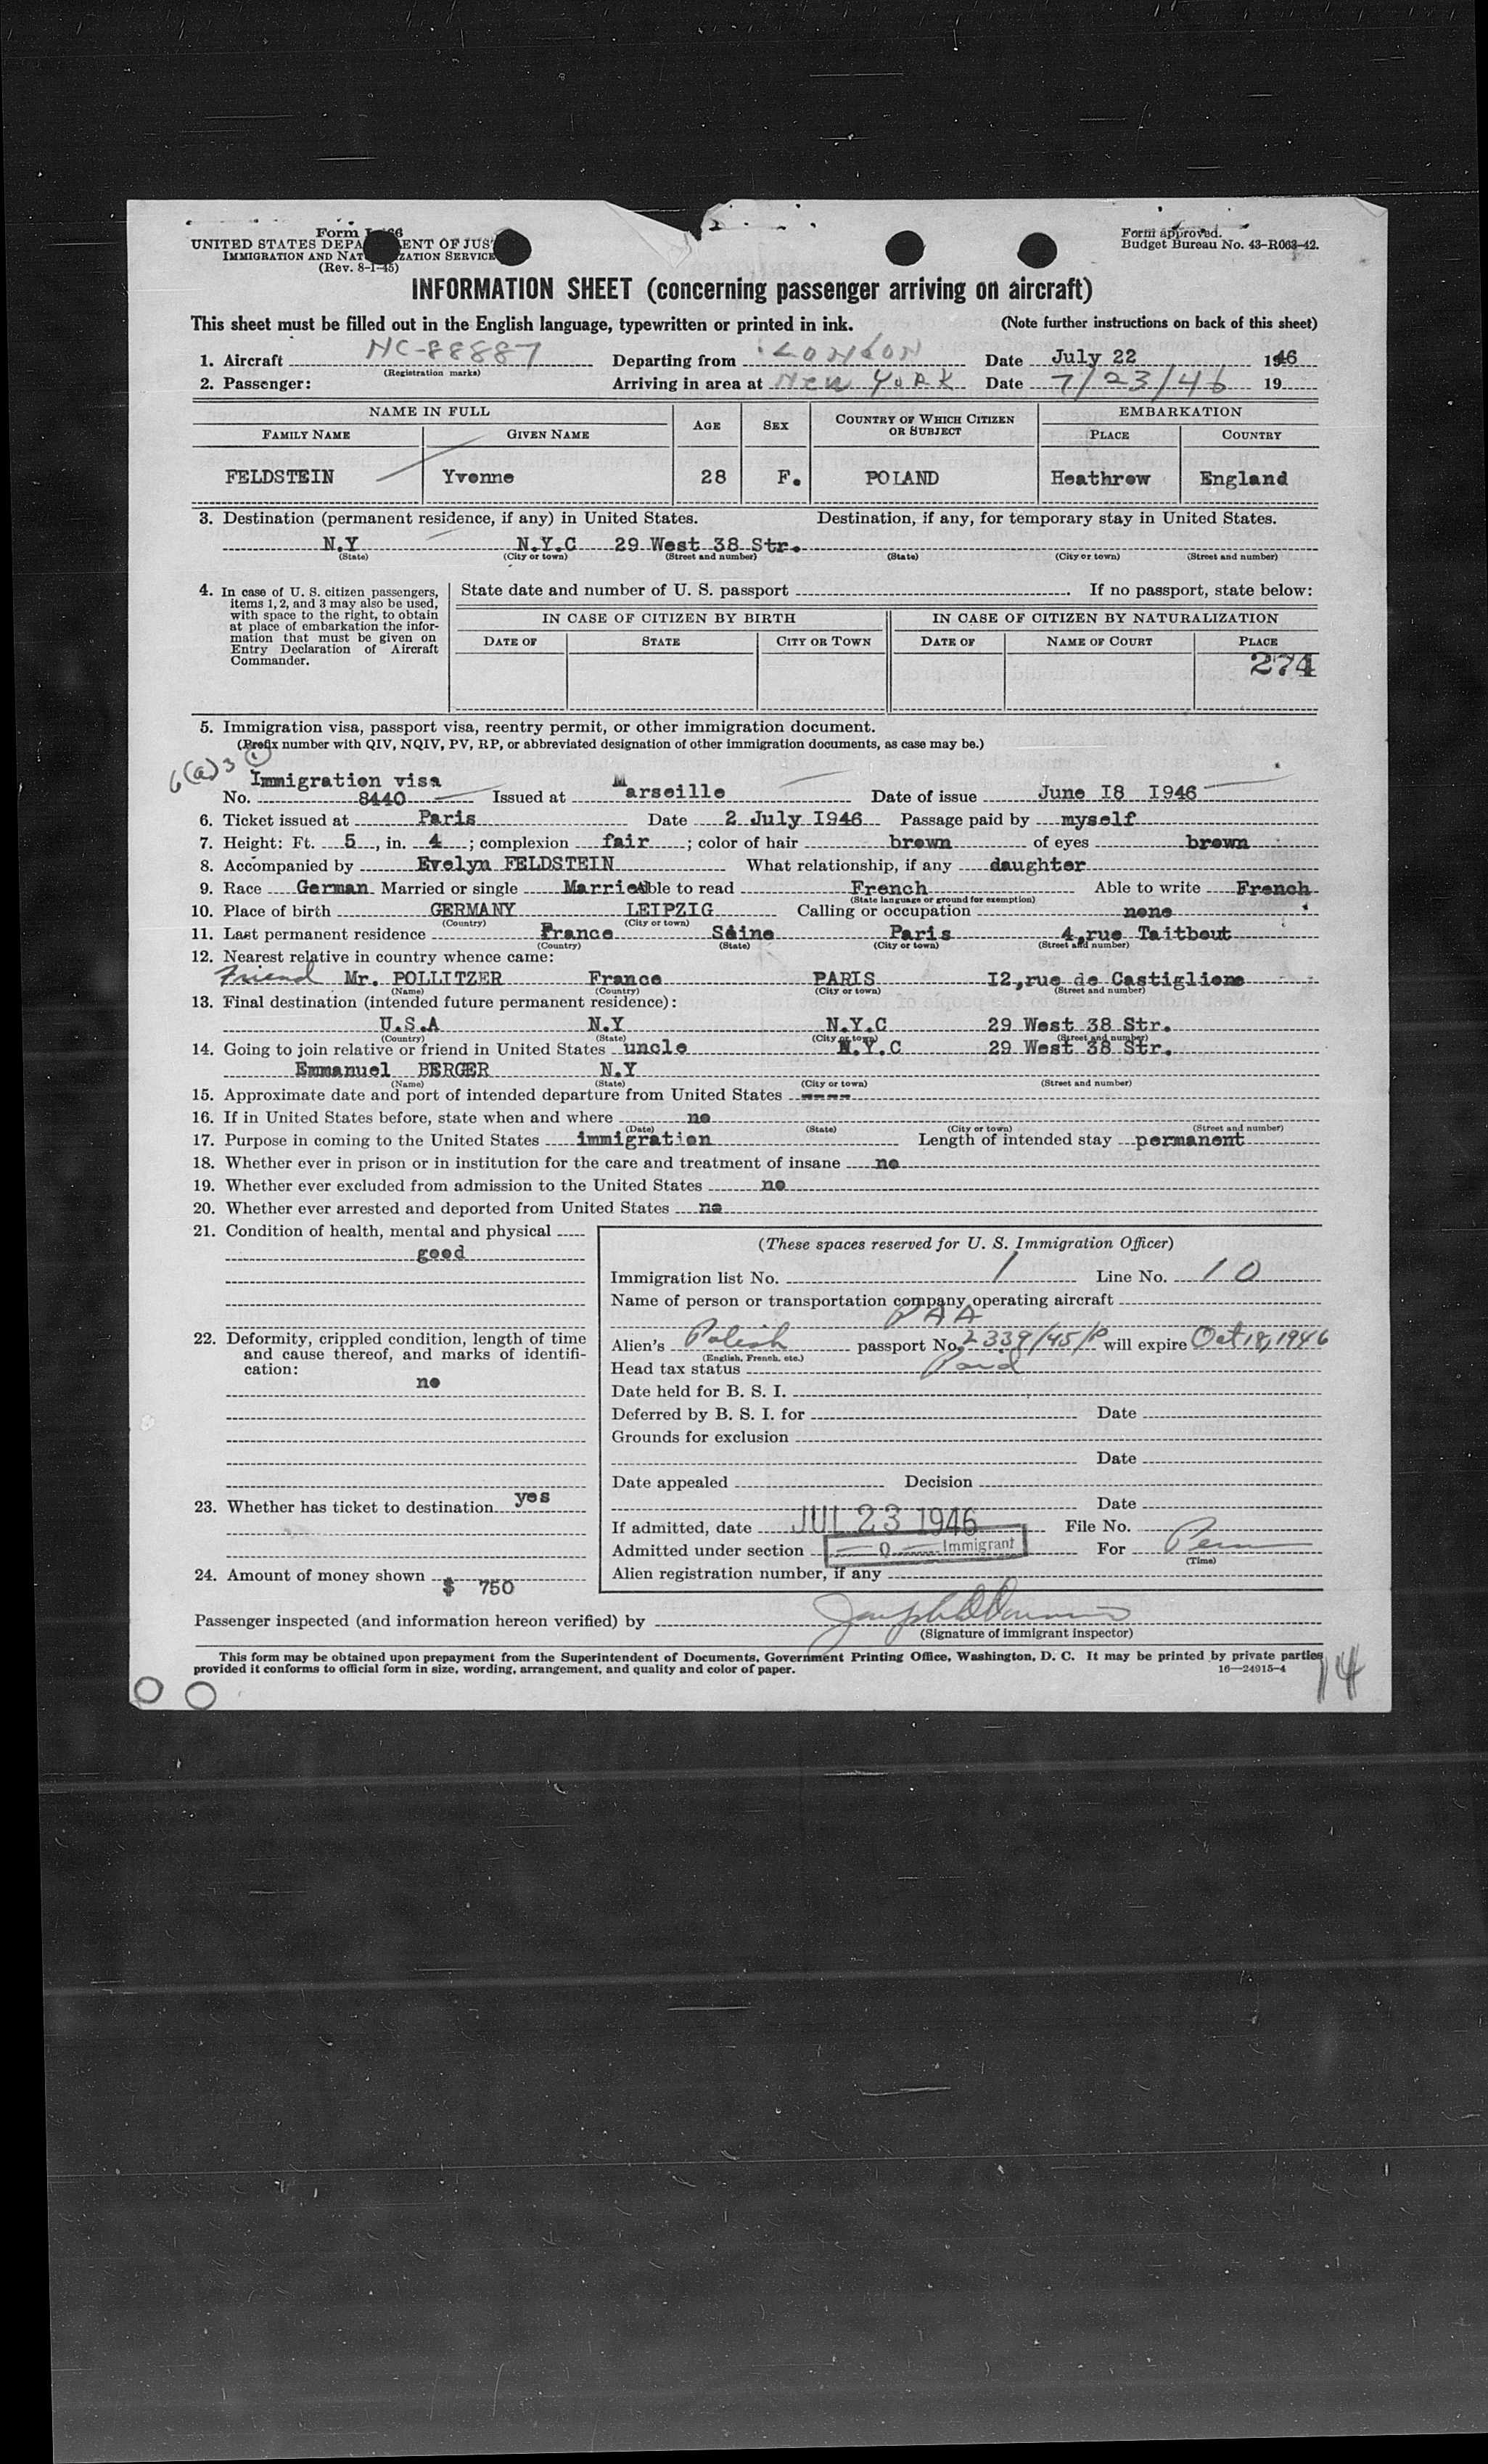 Form I-466
UNITED STATES DEPARTMENT OF JUSTICE
IMMIGRATION AND NATURALIZATION SERVICE
(Rev. 8-1-45)
Form approved.
Budget Bureau No. 43-R063-42.
INFORMATION SHEET (concerning passenger arriving on aircraft)
This sheet must be filled out in the English language, typewritten or printed in ink. (Note further instructions on back of this sheet)
1. Aircraft NC-88887 Departing from LONDON Date July 22 1946
(Registration marks)
2. Passenger: Arriving in area at New YORK Date 7/23/46 19
NAME IN FULL AGE SEX COUNTRY OF WHICH CITIZEN OR SUBJECT EMBARKATION
FAMILY NAME GIVEN NAME PLACE COUNTRY
FELDSTEIN Yvonne 28 F. POLAND Heathrow England
3. Destination (permanent residence, if any) in United States. Destination, if any, for temporary stay in United States.
N.Y N.Y.C 29 West 38 Str.
(State) (City or town) (Street and number) (State) (City or town) (Street and number)
4. In case of U. S. citizen passengers, items 1, 2, and 3 may also be used, with space to the right, to obtain at place of embarkation the information that must be given on Entry Declaration of Aircraft Commander.
State date and number of U. S. passport . If no passport, state below:
IN CASE OF CITIZEN BY BIRTH IN CASE OF CITIZEN BY NATURALIZATION
DATE OF STATE CITY OR TOWN DATE OF NAME OF COURT PLACE
274
5. Immigration visa, passport visa, reentry permit, or other immigration document.
(Prefix number with QIV, NQIV, PV, RP, or abbreviated designation of other immigration documents, as case may be.)
6(a)3 (1)
Immigration visa
No. 8440 Issued at Marseille Date of issue June I8 I946
6. Ticket issued at Paris Date 2 July I946 Passage paid by myself
7. Height: Ft. 5, in. 4; complexion fair; color of hair brown of eyes brown
8. Accompanied by Evelyn FELDSTEIN What relationship, if any daughter
9. Race German Married or single Married Able to read French Able to write French
(State language or ground for exemption)
10. Place of birth GERMANY LEIPZIG Calling or occupation none
(Country) (City or town)
11. Last permanent residence France Séine Paris 4,rue Taitbout
(Country) (State) (City or town) (Street and number)
12. Nearest relative in country whence came:
Friend Mr. POLLITZER France PARIS I2,rue de Castiglione
(Name) (Country) (City or town) (Street and number)
13. Final destination (intended future permanent residence):
U.S.A N.Y N.Y.C 29 West 38 Str.
(Country) (State) (City or town) (Street and number)
14. Going to join relative or friend in United States uncle N.Y.C 29 West 38 Str.
Emmanuel BERGER N.Y
(Name) (State) (City or town) (Street and number)
15. Approximate date and port of intended departure from United States ----
16. If in United States before, state when and where no
(Date) (State) (City or town) (Street and number)
17. Purpose in coming to the United States immigration Length of intended stay permanent
18. Whether ever in prison or in institution for the care and treatment of insane no
19. Whether ever excluded from admission to the United States no
20. Whether ever arrested and deported from United States no
21. Condition of health, mental and physical
good
22. Deformity, crippled condition, length of time and cause thereof, and marks of identification:
no
23. Whether has ticket to destination yes
24. Amount of money shown $ 750
(These spaces reserved for U. S. Immigration Officer)
Immigration list No. 1 Line No. 10
Name of person or transportation company operating aircraft
PAA
Alien's Polish passport No. 2339/45/P will expire Oct 18, 1946
(English, French, etc.)
Head tax status Paid
Date held for B. S. I.
Deferred by B. S. I. for Date
Grounds for exclusion
Date
Date appealed Decision
Date
If admitted, date JUL 23 1946 File No.
Admitted under section 0 Immigrant For Perm
(Time)
Alien registration number, if any
Passenger inspected (and information hereon verified) by
(Signature of immigrant inspector)
This form may be obtained upon prepayment from the Superintendent of Documents, Government Printing Office, Washington, D. C. It may be printed by private parties
provided it conforms to official form in size, wording, arrangement, and quality and color of paper. 16—24915-4
14